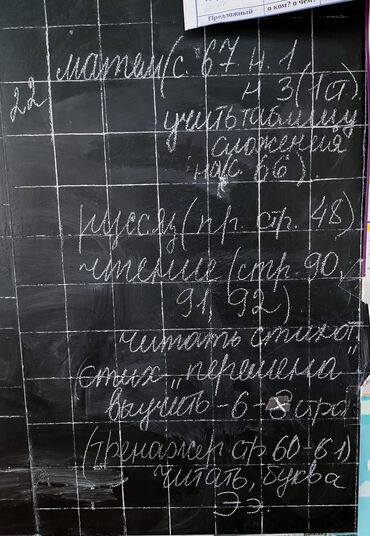 Предложный о ком? о чём?
22 матем (с. 67 н. 1
н 3 (1 ст).
учить таблицу
сложения
на с. 66).
русс яз (пр. стр. 48)
чтение (стр. 90,
91, 92)
читать стихот.
стих „перемена"
выучить - 6 - 8 стро
(тренажер стр 60-61)
читать, буква
Э э.